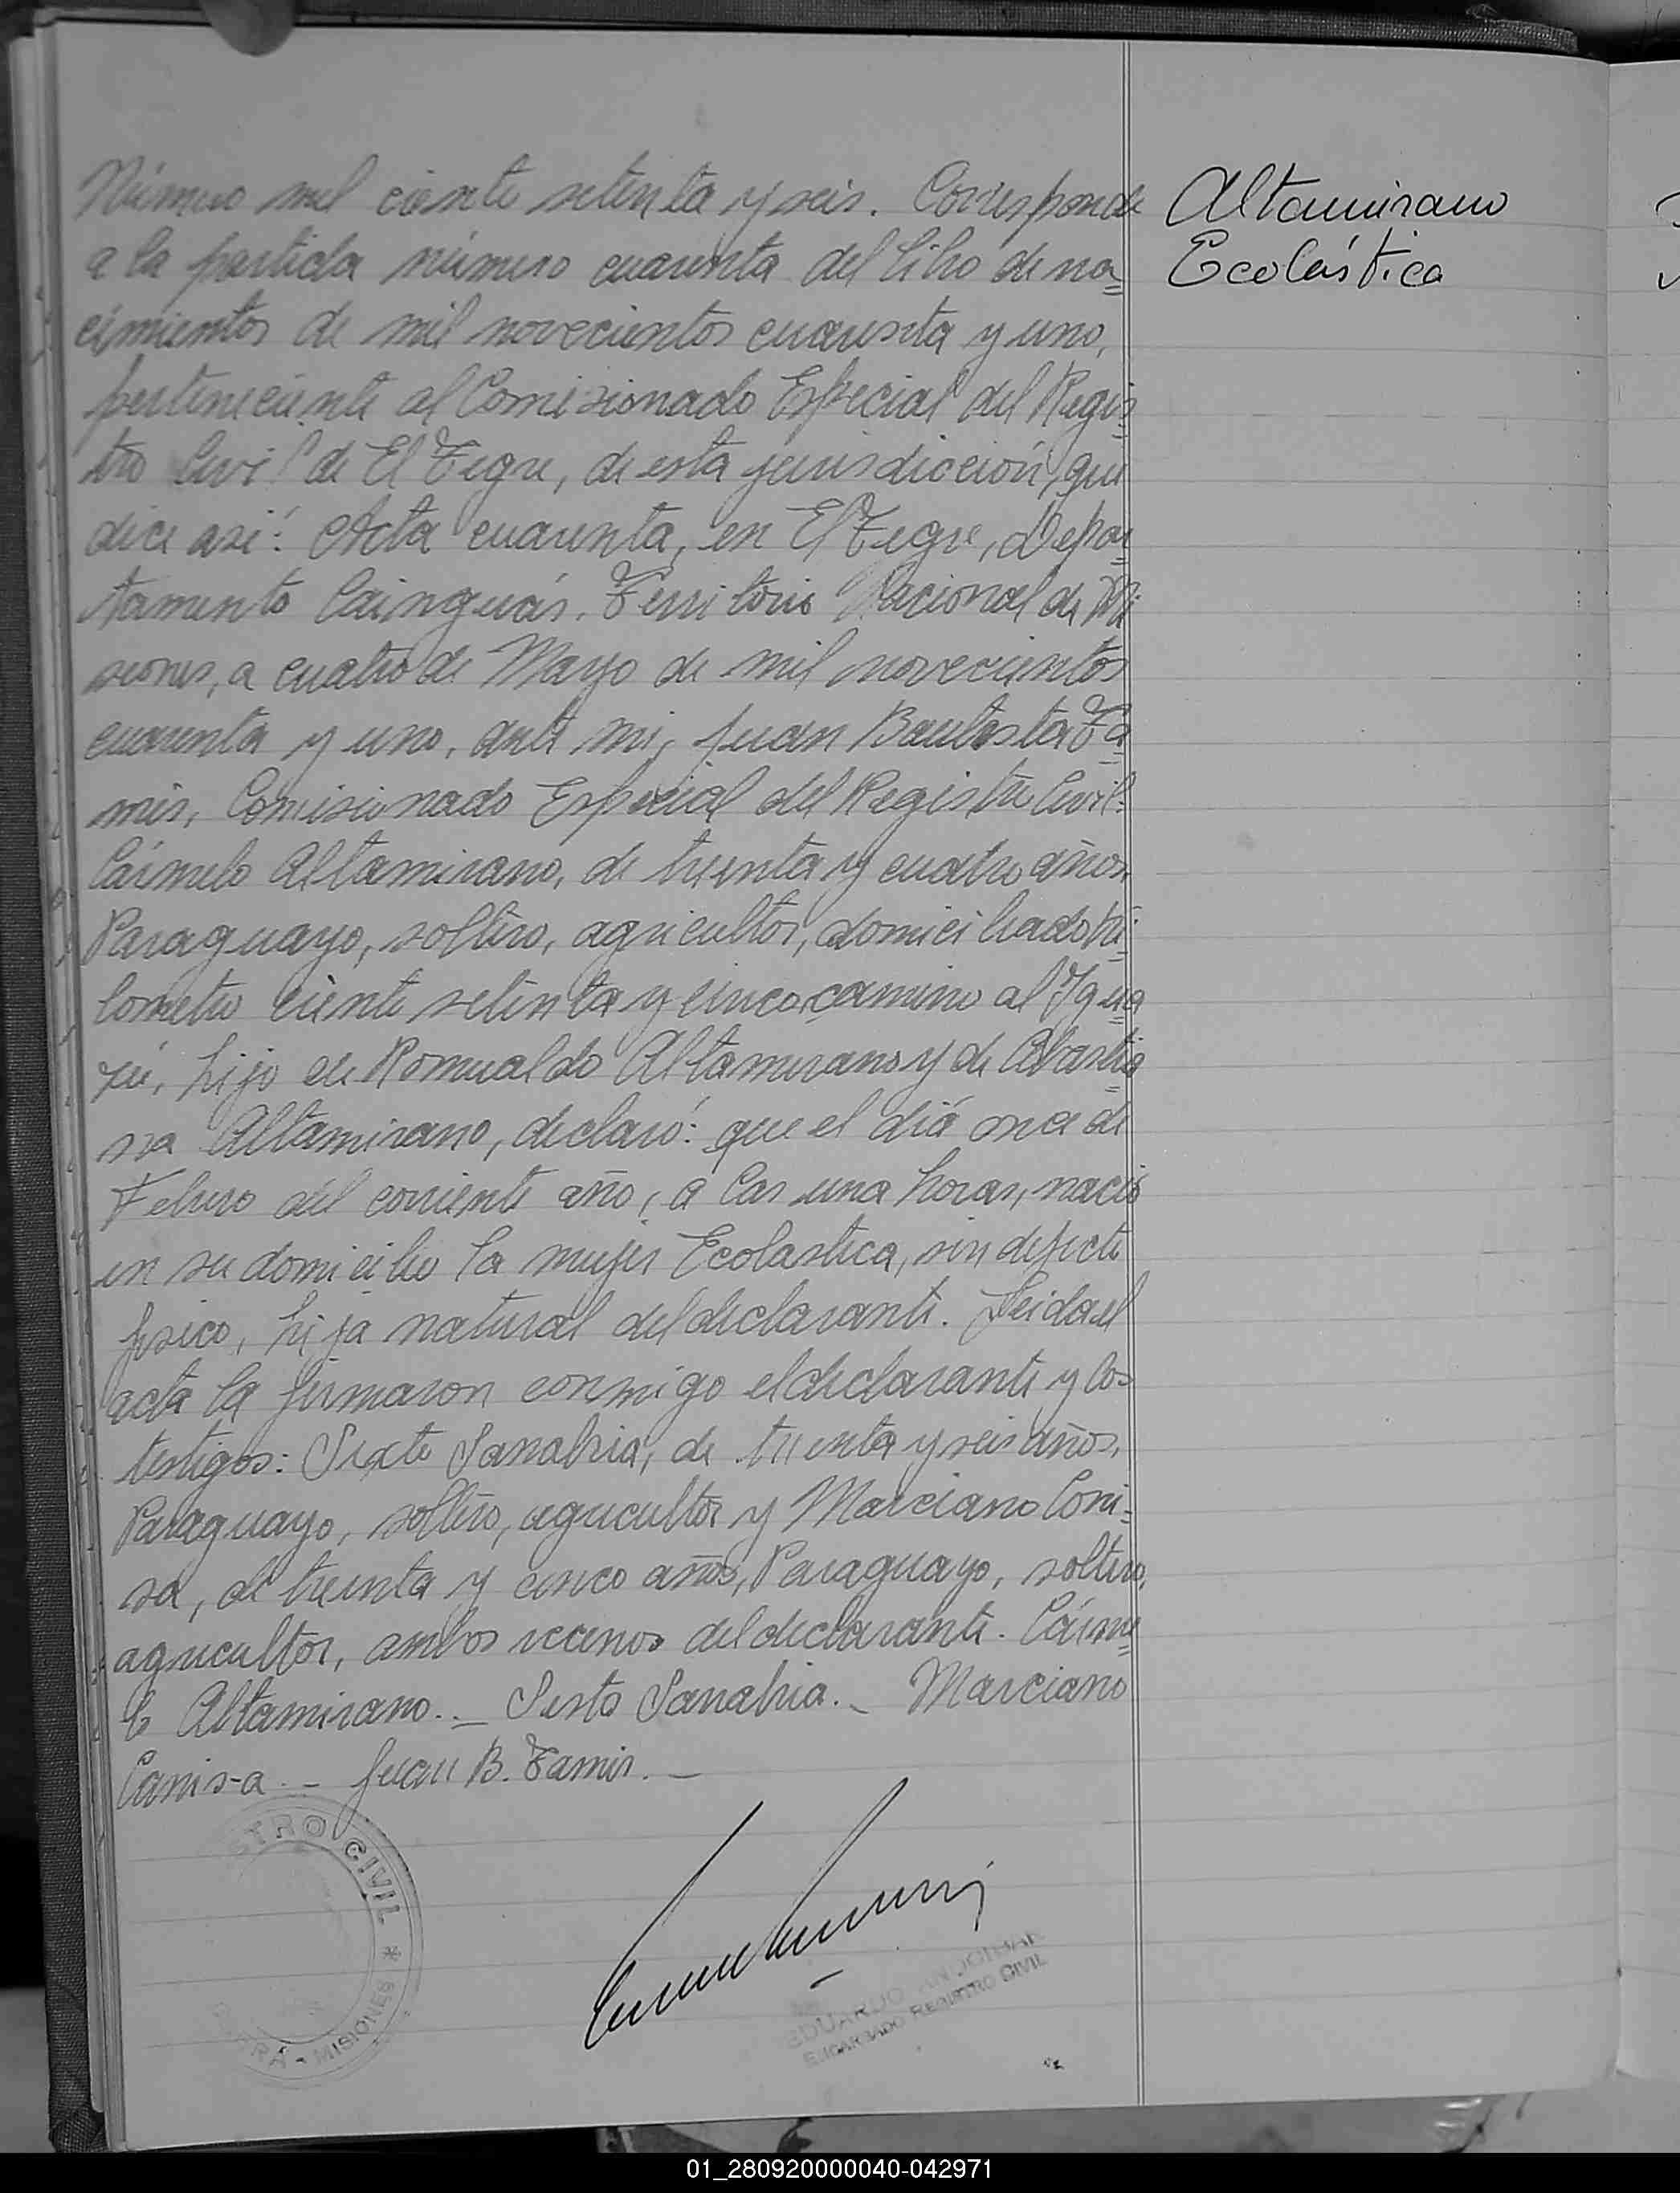 Número mil ciento setenta y seis. Corresponde
a la partida número cuarenta del libro de na=
cimientos de mil novecientos cuarenta y uno,
perteneciente al Comisionado Especial del Regis=
tro Civil de El Tigre, de esta jurisdicción, que
dice así: Acta cuarenta, en El Tigre, Depar=
tamento Cainguás, Territorio Nacional de Mi
siones, a cuatro de Mayo de mil novecientos
cuarenta y uno, ante mi, Juan Bautista Ta=
mis, Comisionado Especial del Registro Civil:
Cármelo Altamirano, de treinta y cuatro años,
Paraguayo, soltero, agricultor, domiciliado ki=
lometro ciento setenta y cinco camino al Igua
zú, hijo de Romualdo Altamirano y de
Altamirano, declaró: que el diá once de
Febrero del corriente año, a las una horas, nació
en su domicilio la mujer Ecolastica, sin defecto
fisico, hija natural del declarante. Leida el
acta la firmaron conmigo el declarante y los
testigos: Sixto Sanabria, de treinta y seis años,
Paraguayo, soltero, agricultor y Marciano Coni=
sa, de treinta y cinco años, Paraguayo, soltero,
agricultor, ambos vecinos del declarante. Cárme=
lo Altamirano._ Sisto Sanabria._ Marciano
Canisa._ Juan B. Tamis._
Altamirano
Ecolástica
STRO CIVIL * MISIONES
EDUARDO
ENCARGADO REGISTRO CIVIL
01_280920000040-042971